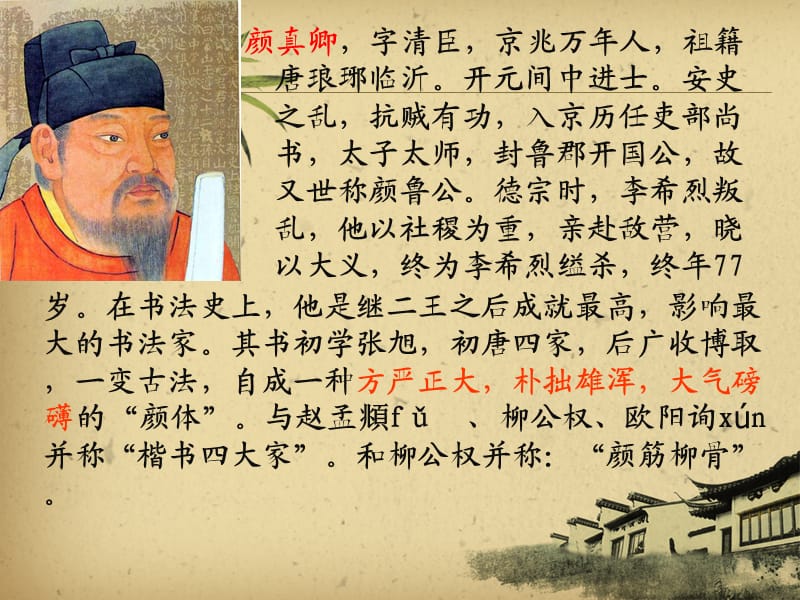 颜真卿，字清臣，京兆万年人，祖籍
唐琅琊临沂。开元间中进士。安史
之乱，抗贼有功，入京历任吏部尚
书，太子太师，封鲁郡开国公，故
又世称颜鲁公。德宗时，李希烈叛
乱，他以社稷为重，亲赴敌营，晓
以大义，终为李希烈缢杀，终年77
岁。在书法史上，他是继二王之后成就最高，影响最
大的书法家。其书初学张旭，初唐四家，后广收博取
，一变古法，自成一种方严正大，朴拙雄浑，大气磅
礴的“颜体”。与赵孟頫fǔ 、柳公权、欧阳询xún
并称“楷书四大家”。和柳公权并称：“颜筋柳骨”
。